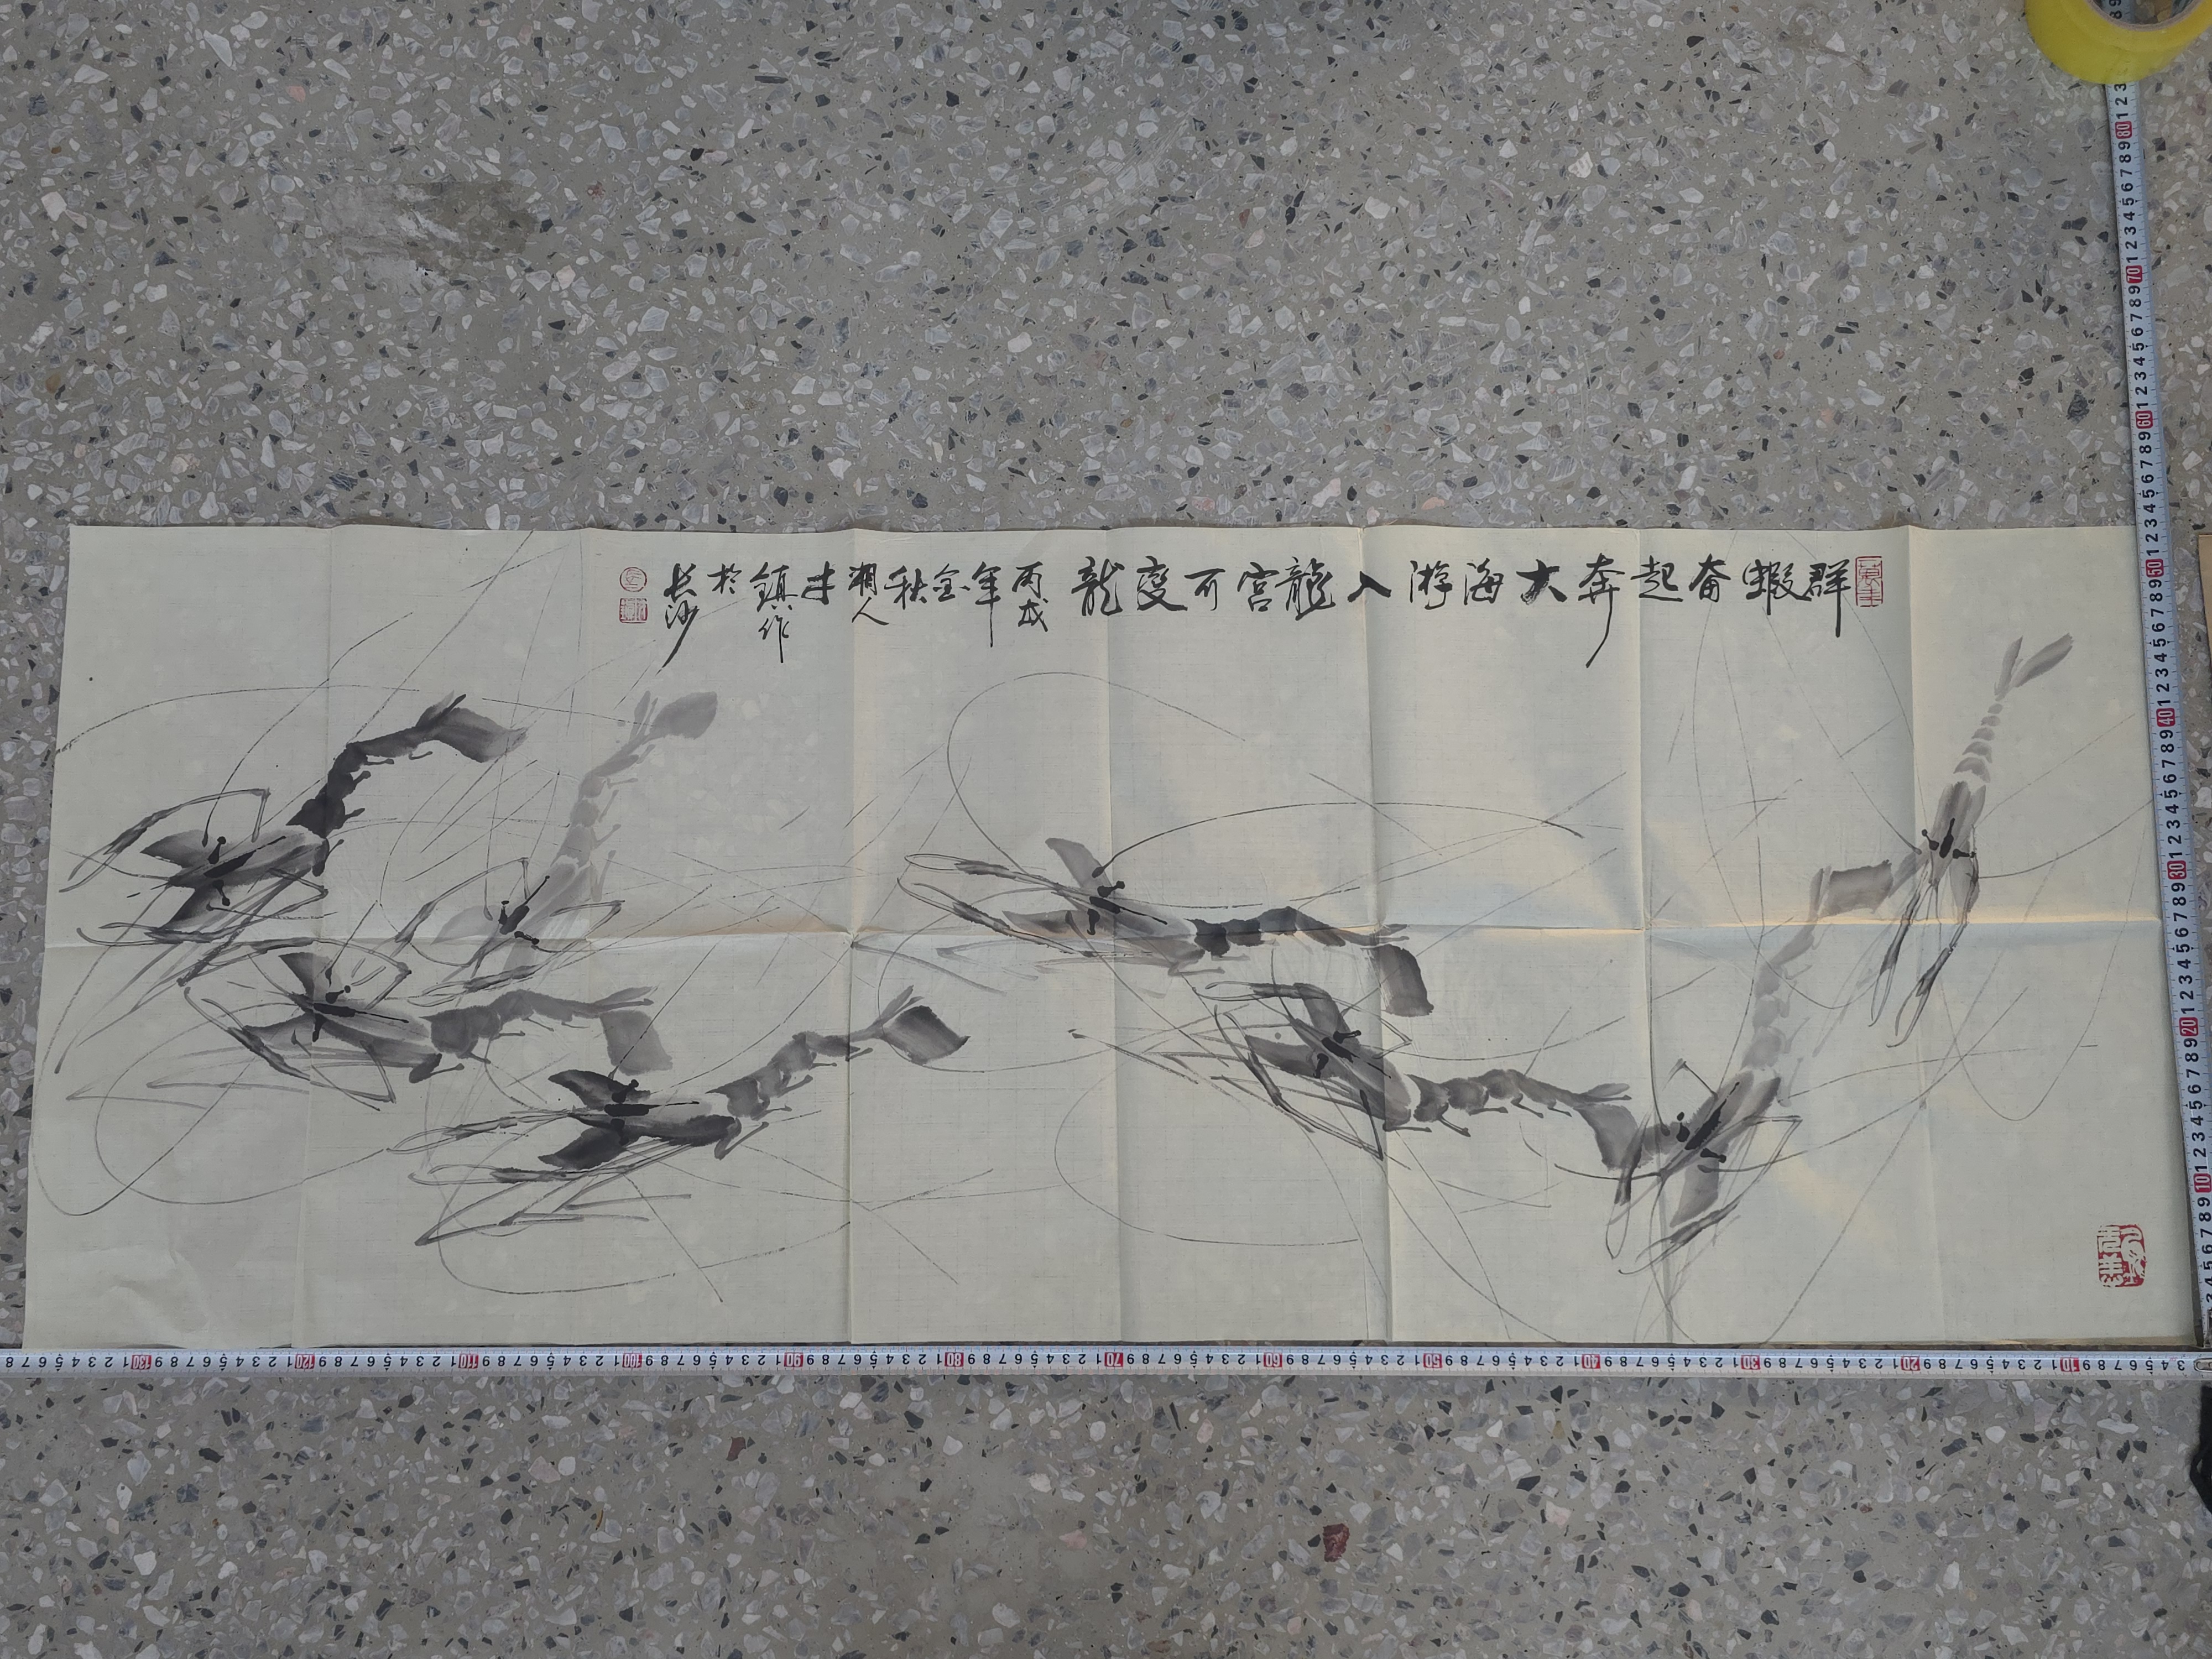 群蝦奋起奔大海游入龍宮可变龍
丙戌年金秋湘人才鎮作於长沙